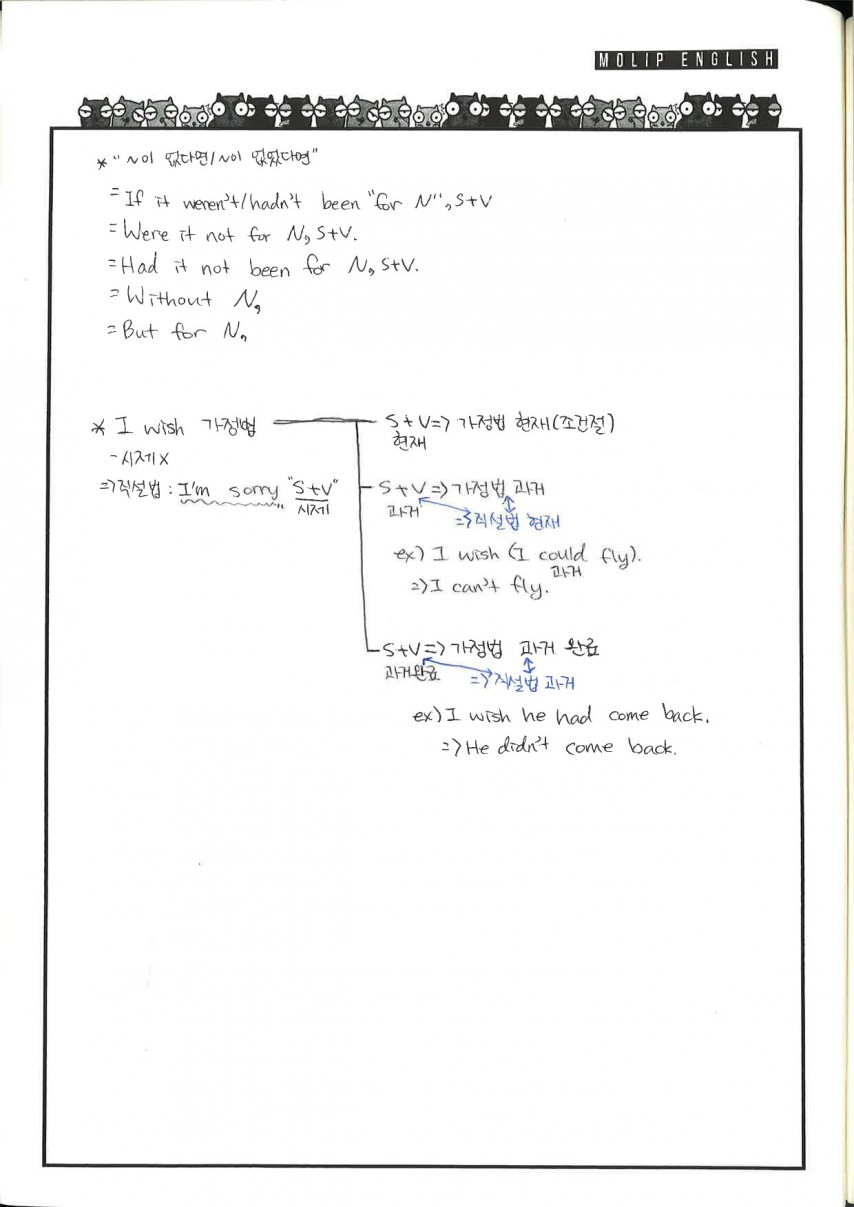 MOLIP ENGLISH
* "N이 없다면/N이 없었다면"
= If it weren't/hadn't been "for N", S+V
= Were it not for N, S+V.
= Had it not been for N, S+V.
= Without N,
= But for N,
* I wish 가정법
- 시제 X
=> 직설법 : I'm sorry "S+V"
시제
S+V => 가정법 현재(조건절)
현재
S+V => 가정법 과거
과거
=> 직설법 현재
ex) I wish (I could fly).
과거
=> I can't fly.
S+V => 가정법 과거 완료
과거완료
=> 직설법 과거
ex) I wish he had come back.
=> He didn't come back.